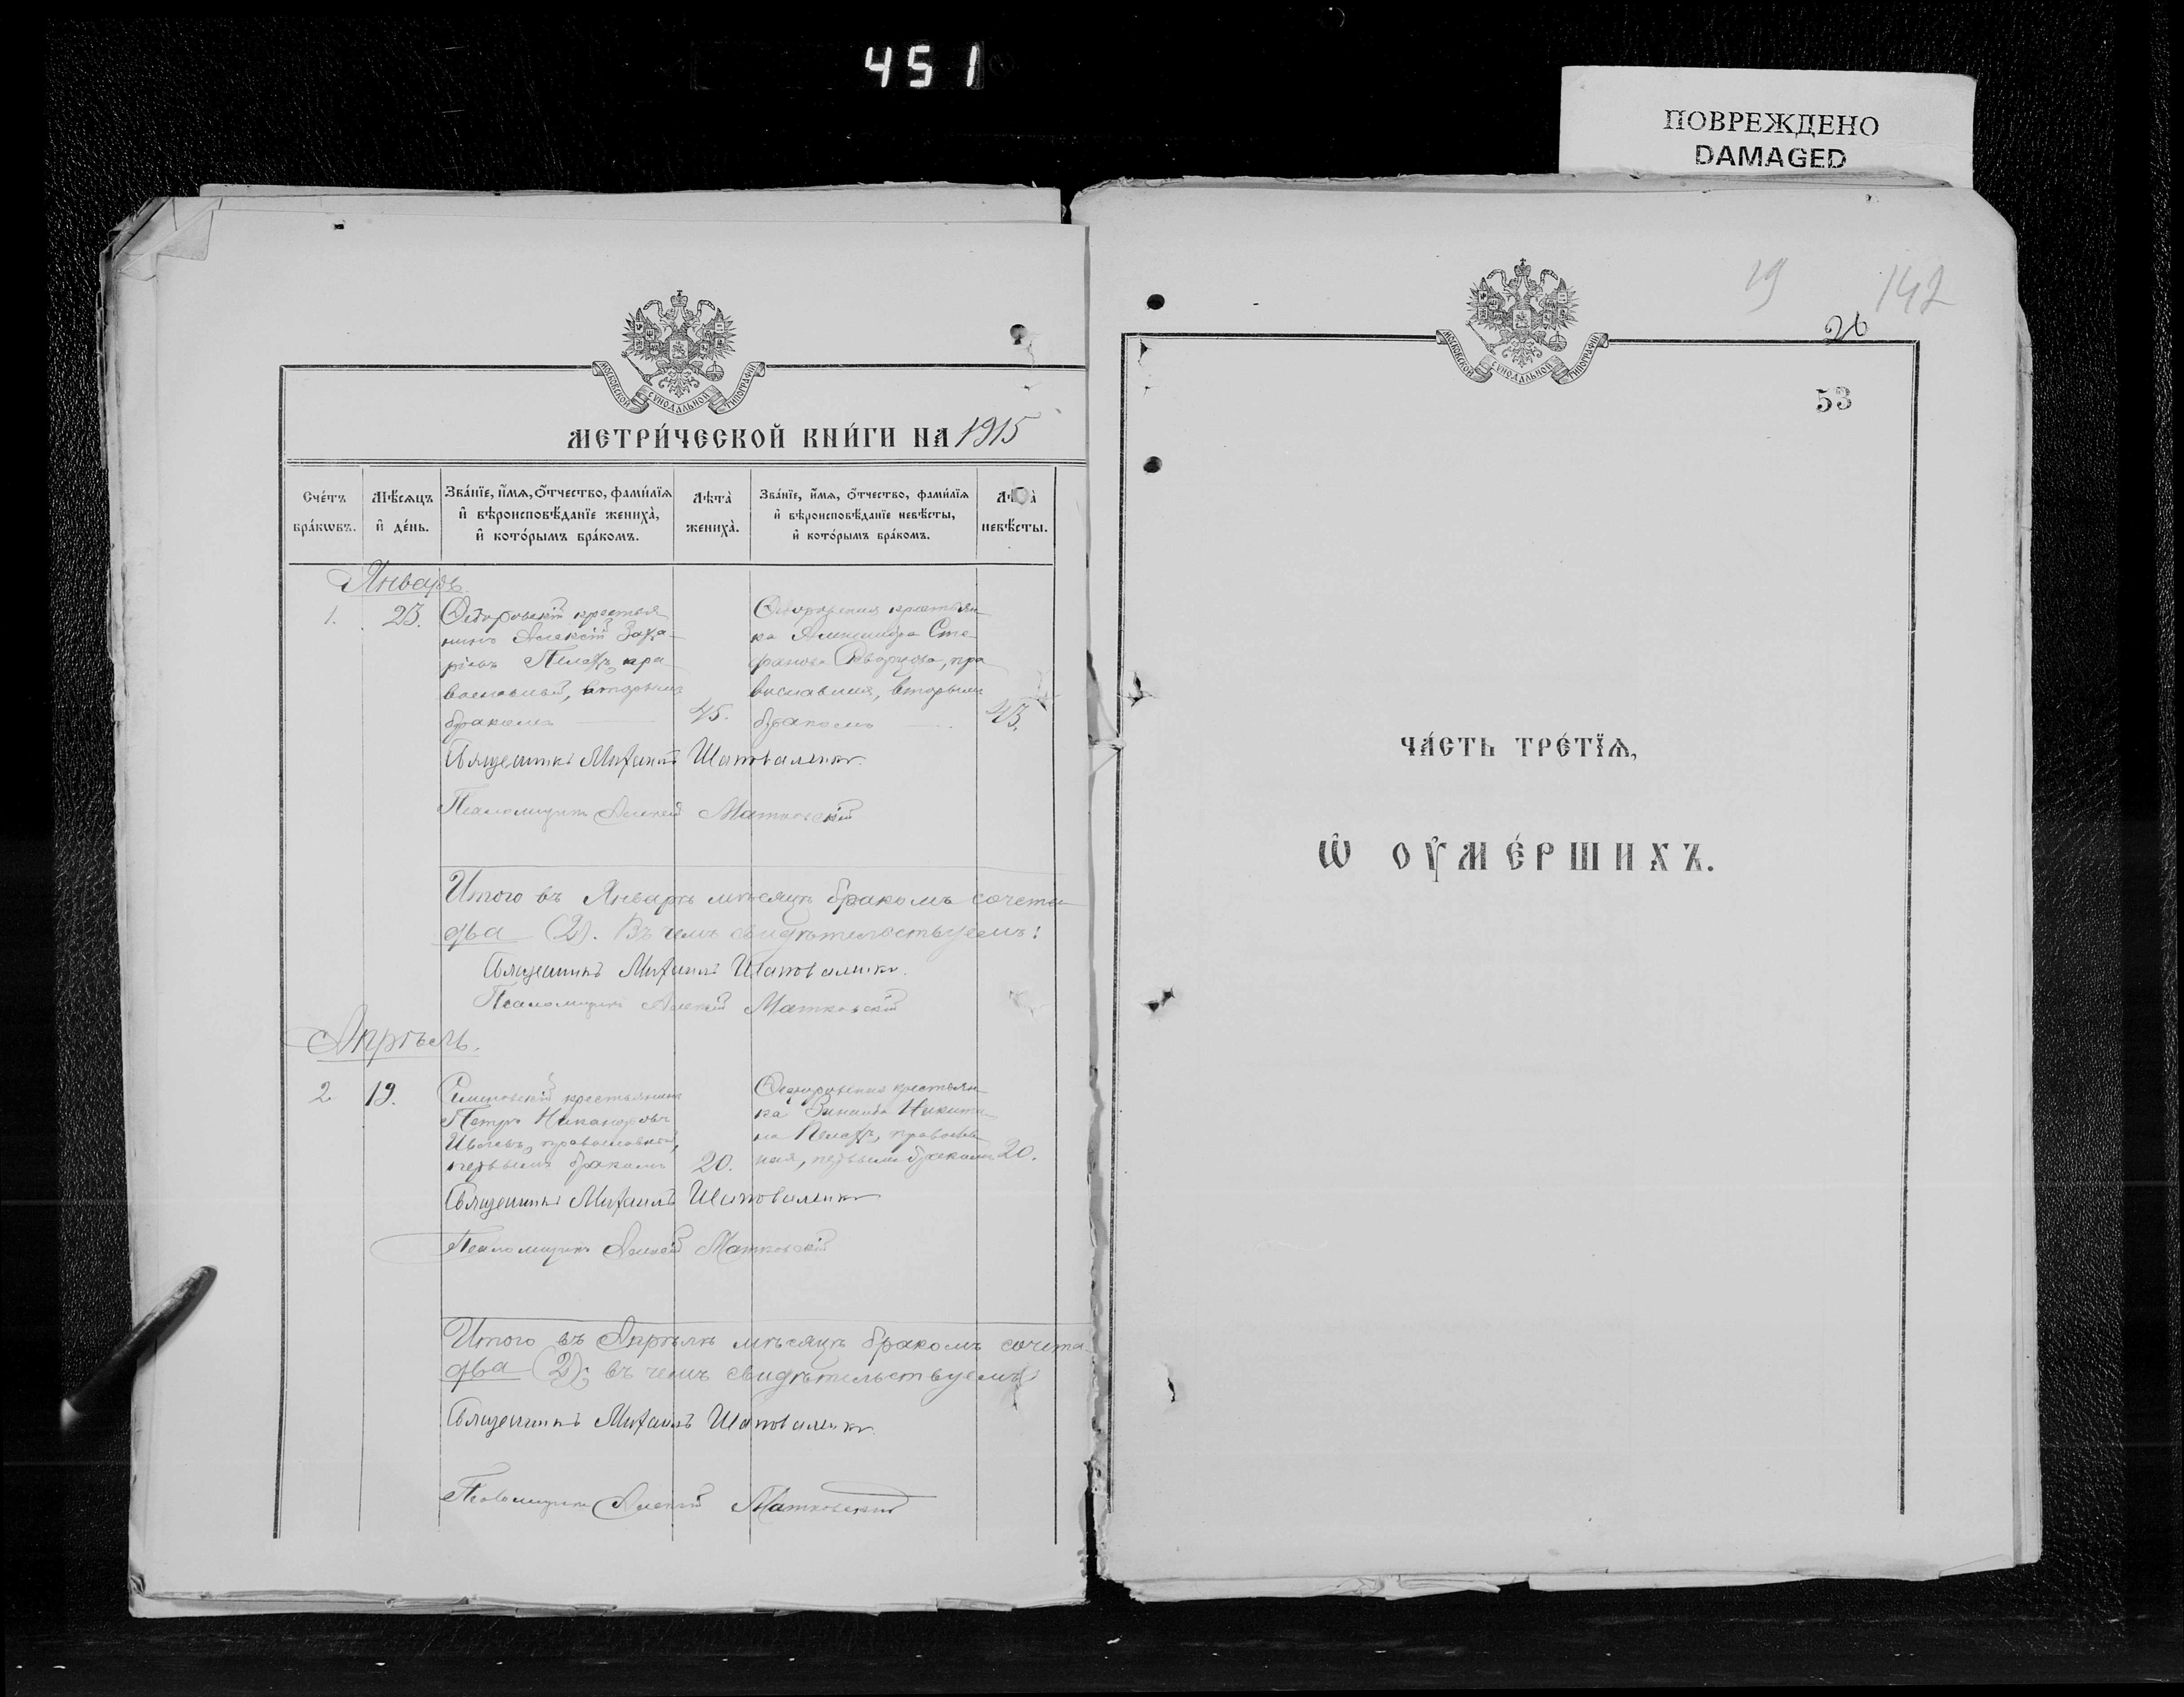 451
ПОВРЕЖДЕНО
DAMAGED
МОСКОВСКОЙ СУНОДАЛЬНОЙ ТИПОГРАФІИ
МЕТРИ́ЧЕСКОЙ КНИ́ГИ НА 1915
Сче́тъ бра́кѡвъ.
Мѣ́сѧцъ и҆ де́нь.
Зва́нїе, и҆́мѧ, ѻ҆́тчество, фами́лїѧ и҆ вѣроисповѣ́данїе жениха̀, и҆ кото́рымъ бра́комъ.
Лѣта̀ жениха̀.
Зва́нїе, и҆́мѧ, ѻ҆́тчество, фами́лїѧ и҆ вѣроисповѣ́данїе невѣ́сты, и҆ кото́рымъ бра́комъ.
невѣ́сты.
Январь.
1. 23.
Ѳедоровскій крестья
нинъ Алексій Заха-
ріевъ пра
вославный, вторымъ
бракомъ 45.
Ѳедоровская крестьян-
ка Александра Сте-
фанова пра
вославная, вторымъ
бракомъ 43.
Священникъ Михаилъ Шаповаленко.
Псаломщикъ Алексій Матковскій
Итого въ Январѣ мѣсяцѣ бракомъ сочета
два (2). Въ чемъ свидѣтельствуемъ:
Священникъ Михаилъ Шаповаленко.
Псаломщикъ Алексій Матковскій
Апрѣль.
2 19.
крестьянинъ
Петръ Никаноровъ
православный,
первымъ бракомъ 20.
Ѳедоровская крестьян-
ка Зинаида Никити-
на православ
ная, первымъ бракомъ 20.
Священникъ Михаилъ Шаповаленко
Псаломщикъ Алексій Матковскій
Итого въ Апрѣлѣ мѣсяцѣ бракомъ сочета-
два (2); въ чемъ свидѣтельствуемъ:
Священникъ Михаилъ Шаповаленко.
Псаломщикъ Алексій Матковскій
19 142
26
МОСКОВСКОЙ СУНОДАЛЬНОЙ ТИПОГРАФІИ
53
ЧА́СТЬ ТРЕ́ТЇѦ,
Ѽ ОУ҆МЕ́РШИХЪ.